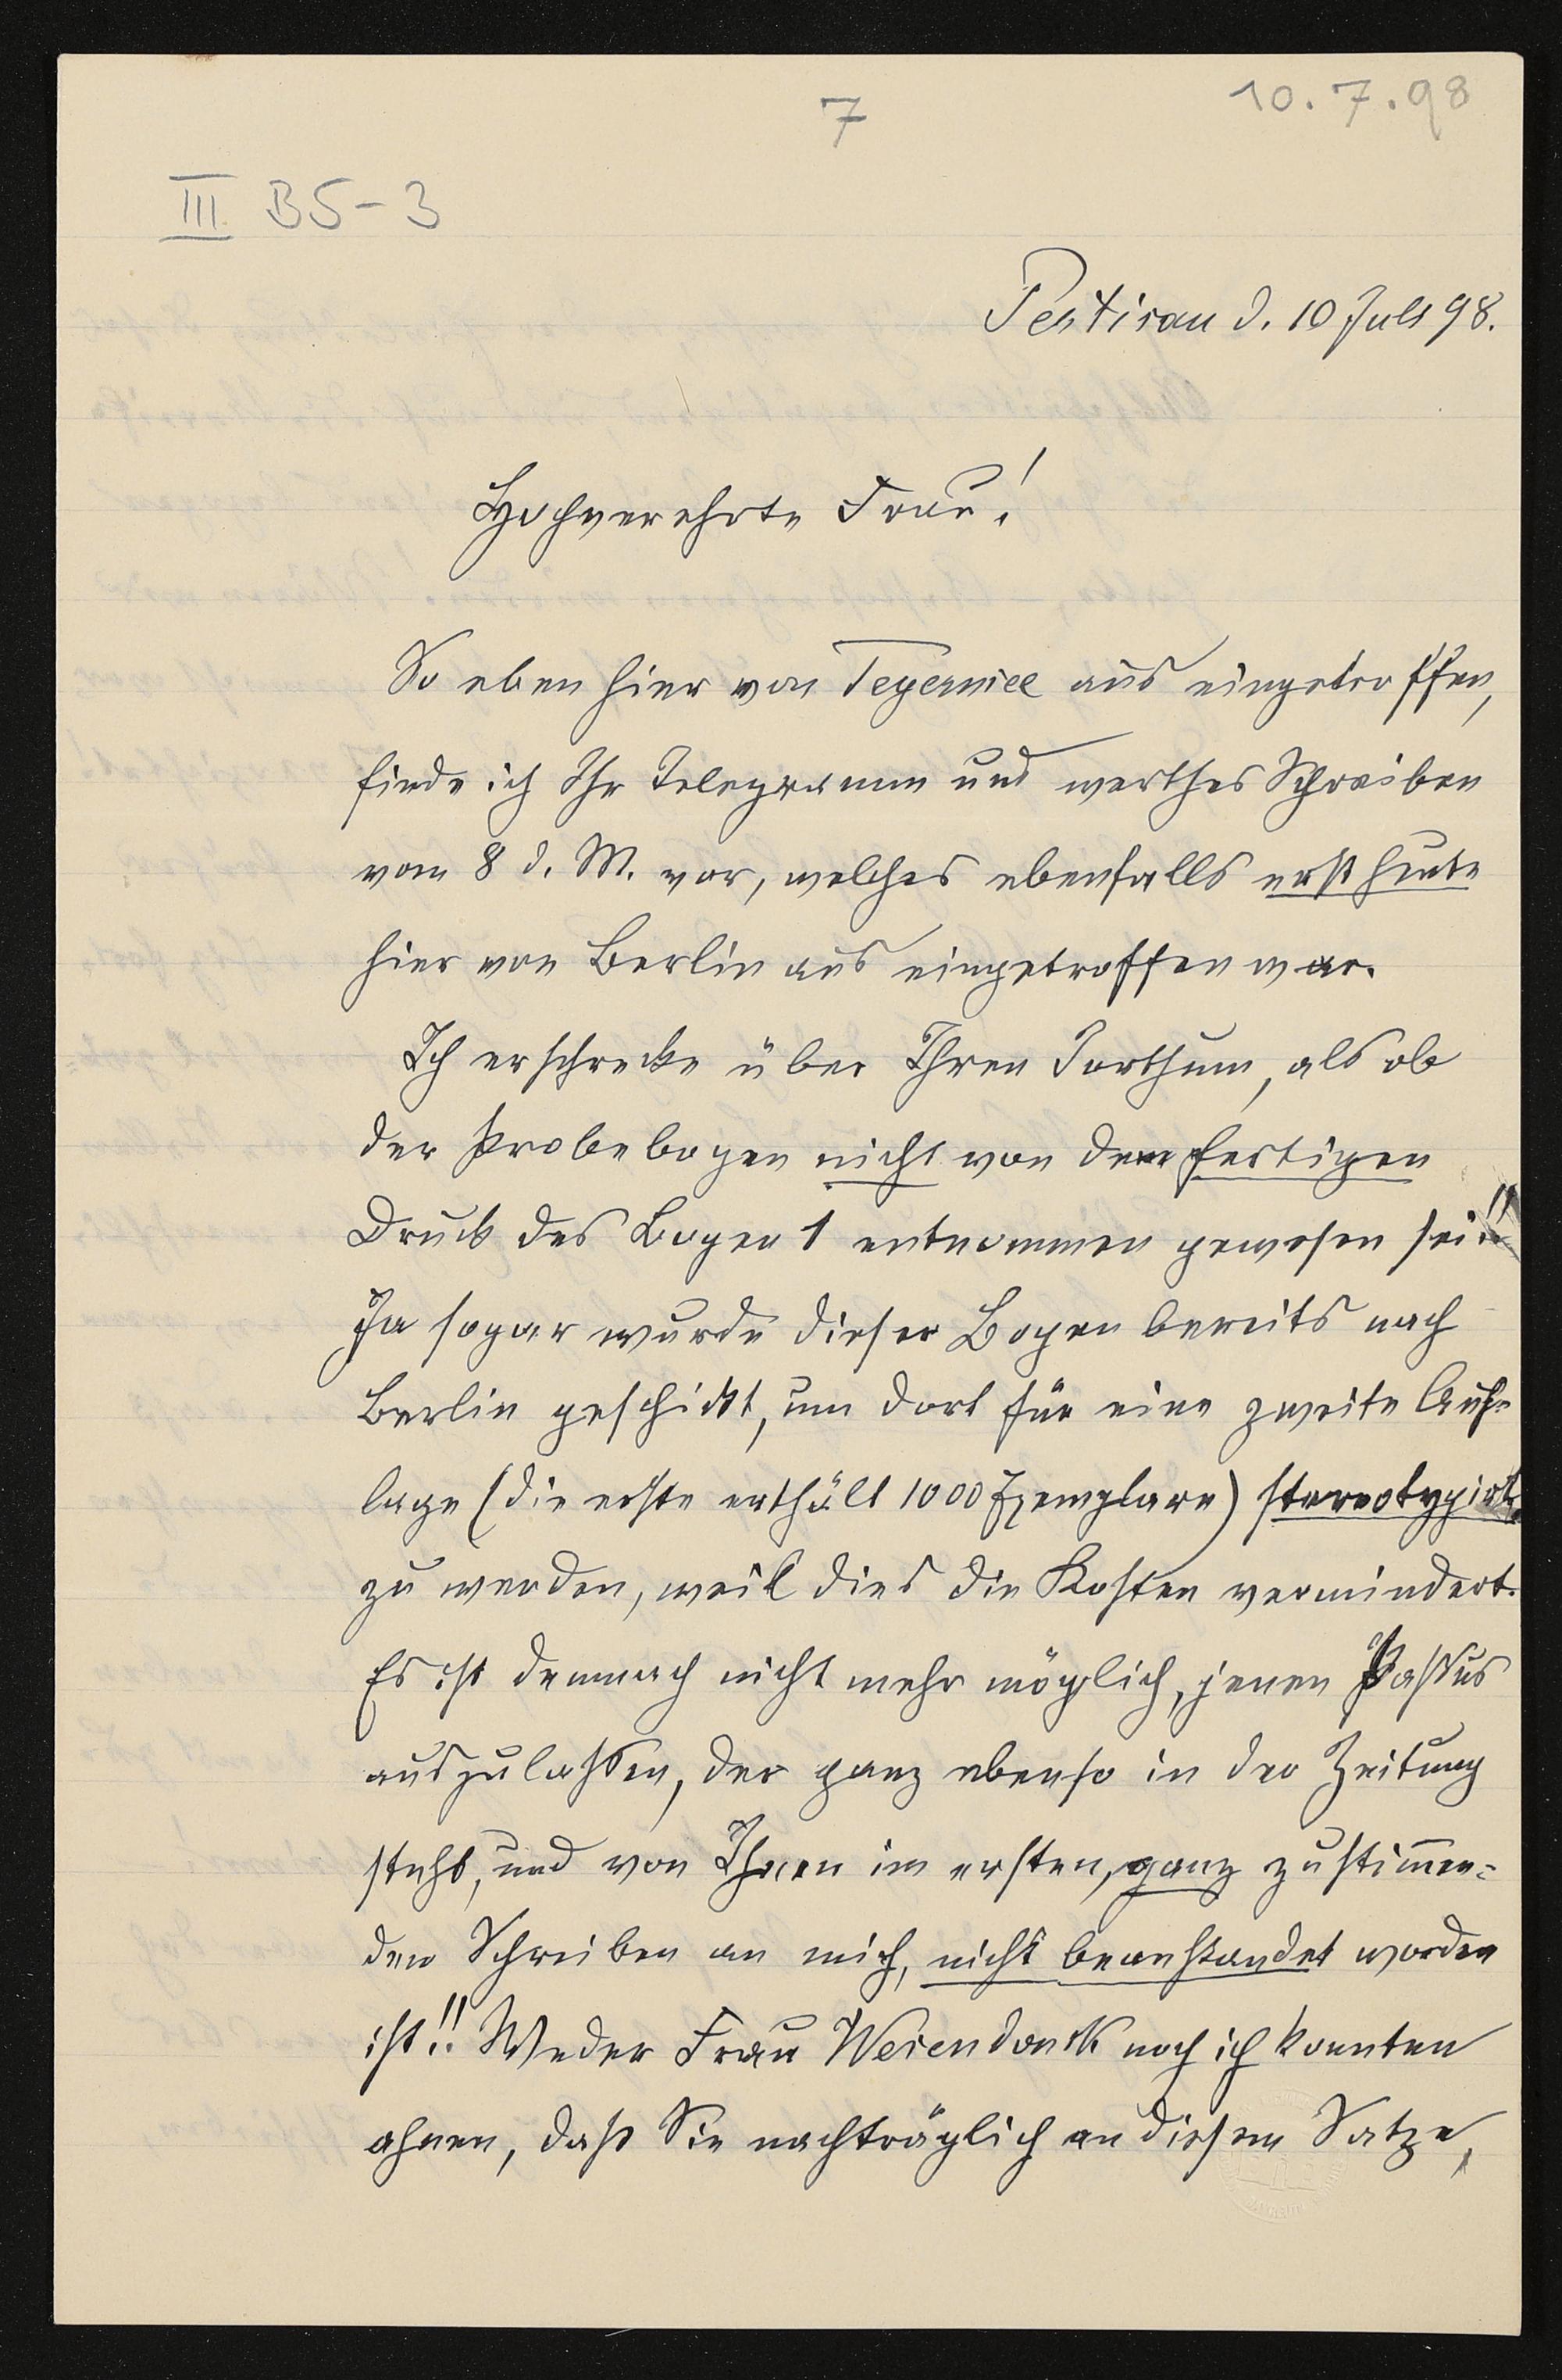 7
10.7.98
III B5-3
Pertisau d. 10 Juli 98.
Hochverehrte Frau!
So eben hier von Tegernsee aus eingetroffen,
finde ich Ihr Telegramm und werthes Schreiben
vom 8 d. M. vor, welches ebenfalls erst heute
hier von Berlin aus eingetroffen war.
Ich erschrecke über Ihren Irrthum, als ob
der Probebogen nicht von dem fertigen
Druck des Bogen 1 entnommen gewesen sei!!
Ja sogar wurde dieser Bogen bereits nach
Berlin geschickt, um dort für eine zweite Auf-
lage (die erste enthält 1000 Exemplare) stereotypirt
zu werden, weil dies die Kosten vermindert.
Es ist demnach nicht mehr möglich, jenen Passus
auszulassen, der ganz ebenso in der Zeitung
steht, und von Ihnen im ersten, ganz zustim̅en-
den Schreiben an mich, nicht beanstandet worden
ist!! Weder Frau Wesendonck noch ich konnten
ahnen, daß Sie nachträglich an diesem Satze,